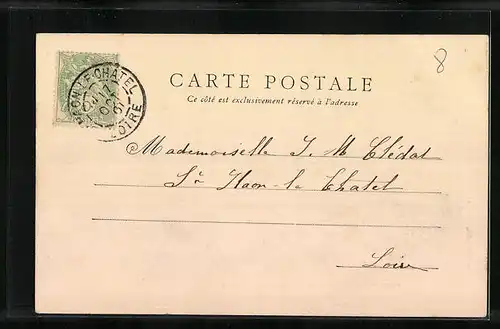 8
CARTE POSTALE
Ce côté est exclusivement réservé à l'adresse
HAON-LE-CHATEL
LOIRE
Mademoiselle J. M Clédat
St Haon-le Chatel
Loire